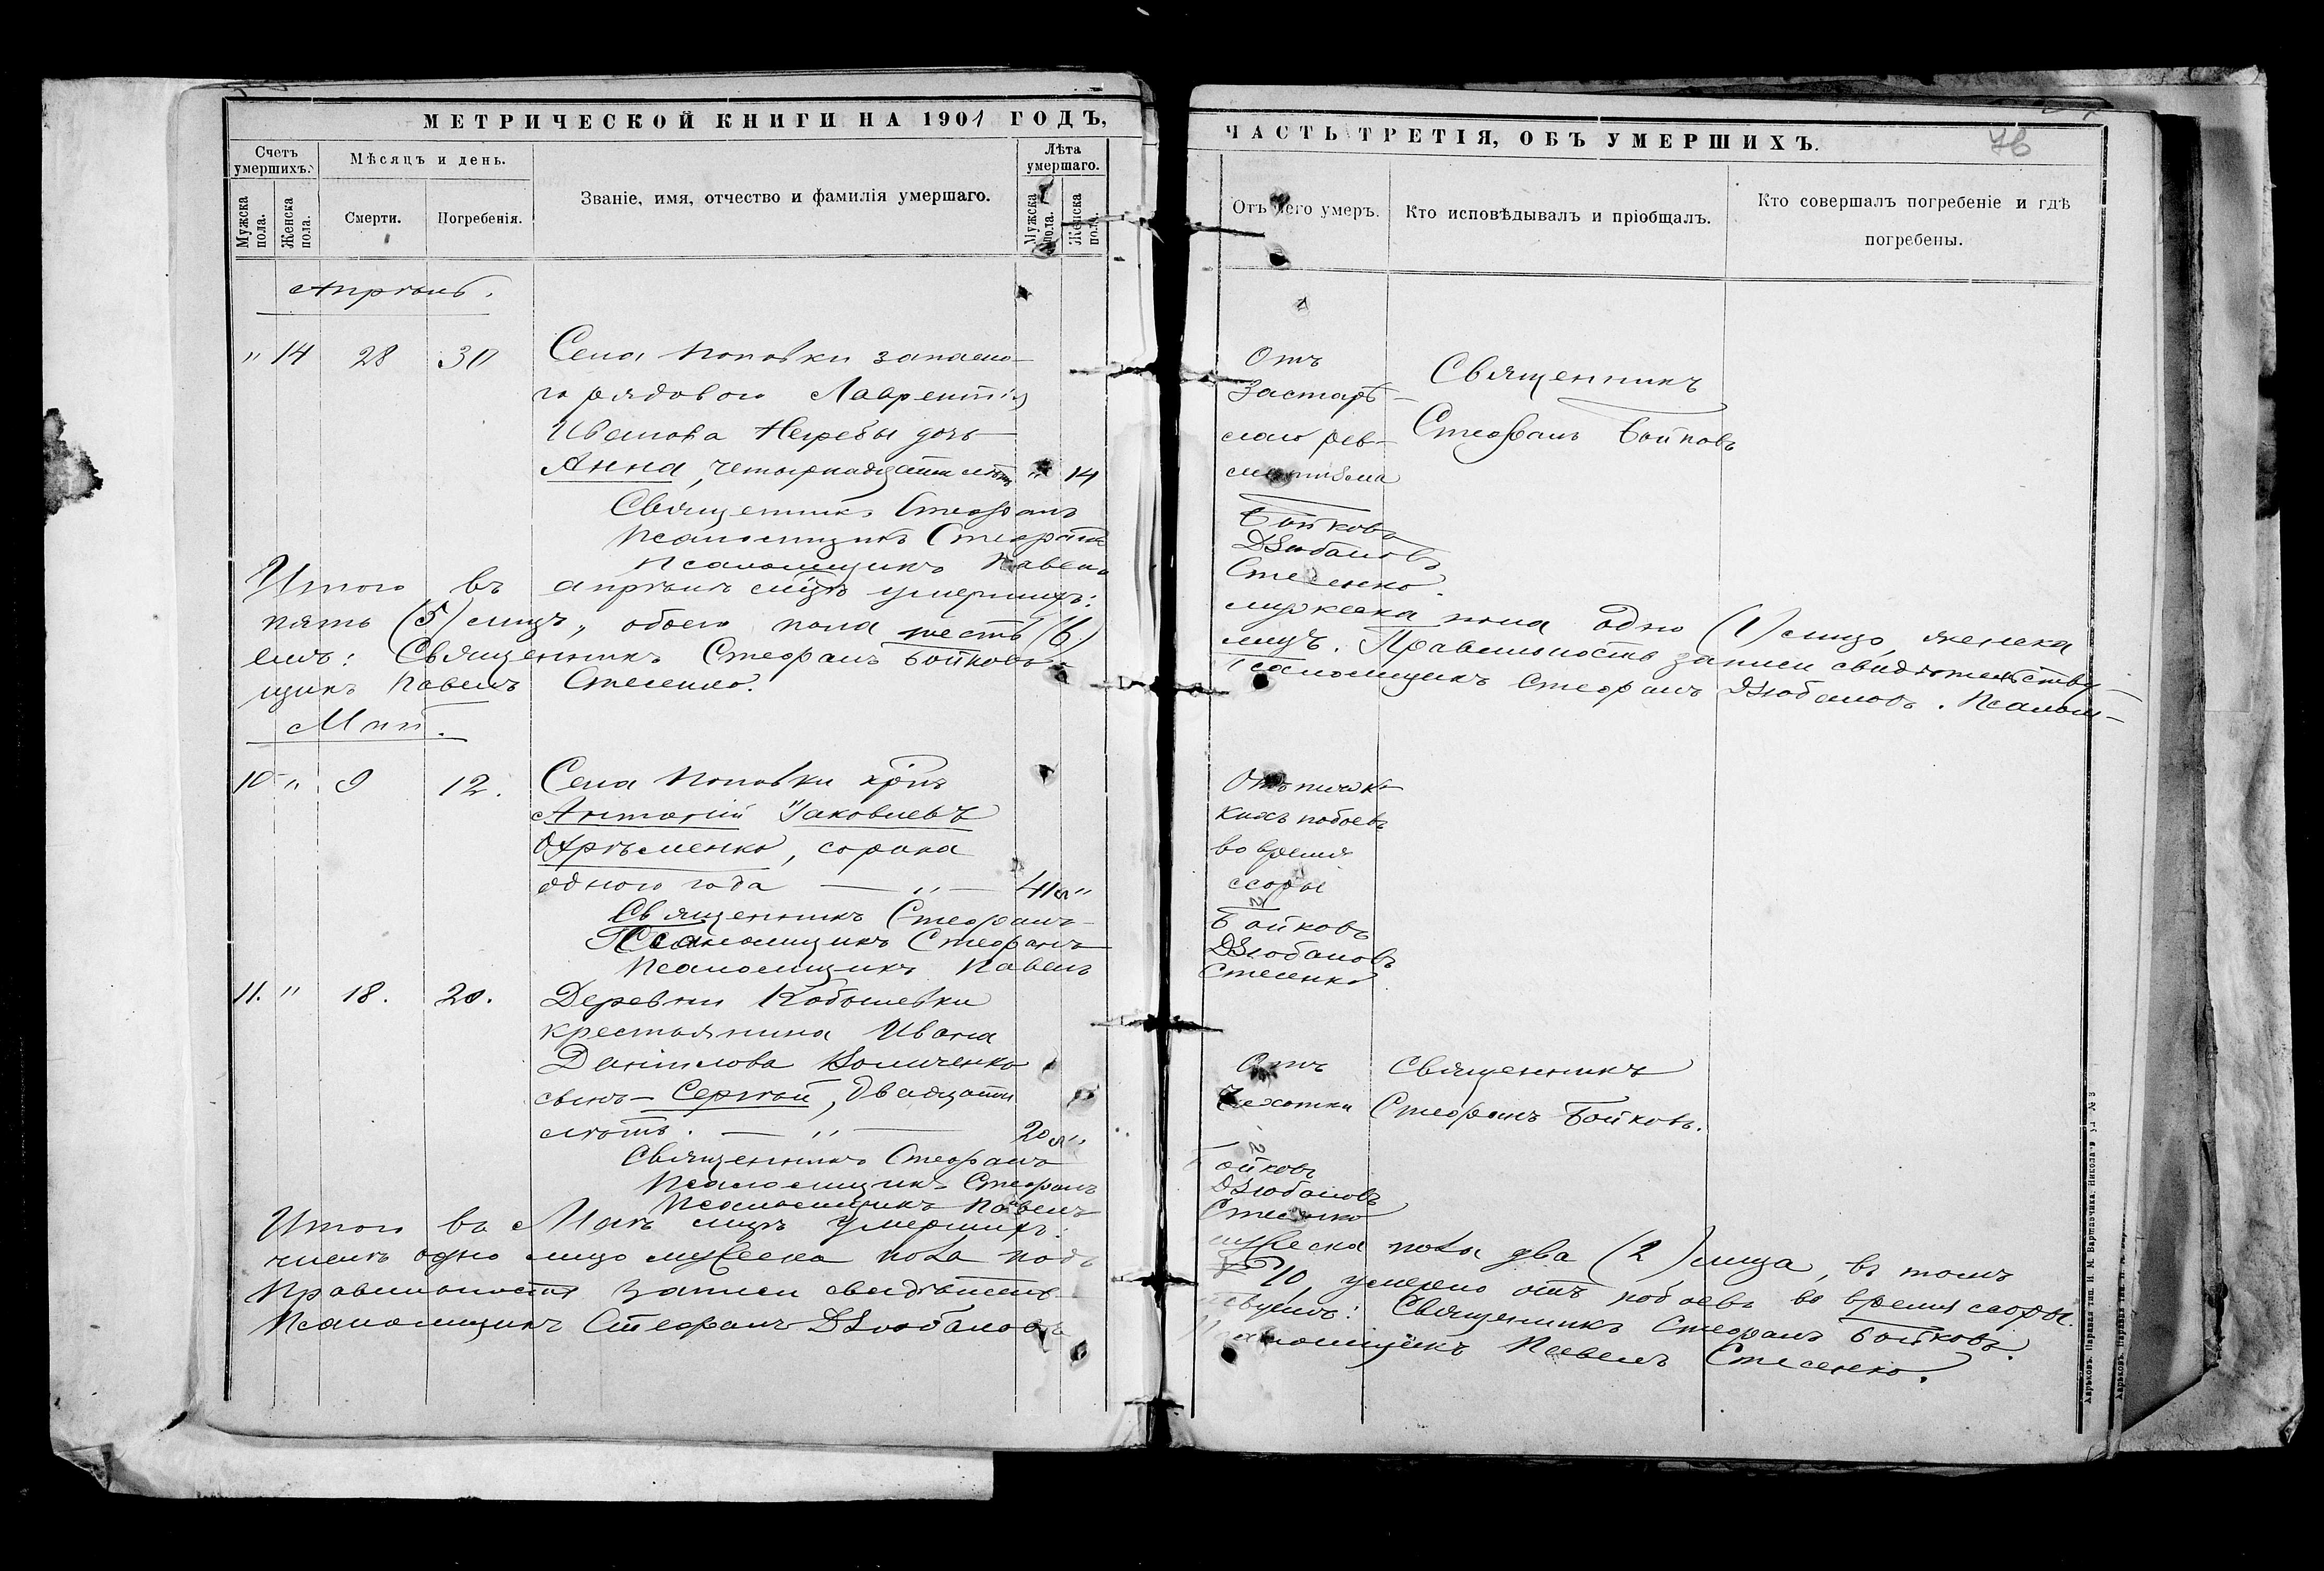 МЕТРИЧЕСКОЙ КНИГИ НА 1901 ГОДЪ,
Счетъ умершихъ.
Мѣсяцъ и день.
Званіе, имя, отчество и фамилія умершаго.
Лѣта умершаго.
Мужска пола.
Женска пола.
Смерти.
Погребенія.
Мужска пола.
Женска пола.
Апрѣль.
" 14 28 30 Села Поповки запасно-
го рядового Лаврентія
Иванова дочь
Анна, четырнадцати лѣтъ " 14
Священникъ Стефанъ
Псаломщикъ Стефанъ
Псаломщикъ Павелъ
Итого въ апрѣлѣ мцѣ умершихъ:
пять (5) лицъ, обоего пола шесть (6)
емъ: Священникъ Стефанъ Бойковъ
щикъ Павелъ Стесенко.
Май.
10 " 9 12. Села Поповки крнъ
Антоній Іаковлевъ
Охрѣменко, сорока
одного года — " — 41 "
Священникъ Стефанъ
Псаломщикъ Стефанъ
Псаломщикъ Павелъ
11. " 18. 20. Деревни
крестьянина Ивана
Даніилова
сынъ — Сергѣй, двадцати
лѣтъ. — " — 20 "
Священникъ Стефанъ
Псаломщикъ Стефанъ
Псаломщикъ Павелъ
Итого въ Маѣ мцѣ умершихъ:
числѣ одно лицо мужеска пола подъ
Правильность записи свидѣтель-
Псаломщикъ Стефанъ Дзюбановъ
ЧАСТЬ ТРЕТІЯ, ОБЪ УМЕРШИХЪ.
76
Отъ чего умеръ.
Кто исповѣдывалъ и пріобщалъ.
Кто совершалъ погребеніе и гдѣ погребены.
Отъ
Застарѣ-
лаго рев-
матизма
Священникъ
Стефанъ Бойковъ
Бойковъ
Дзюбановъ
Стесенко.
мужеска пола одно (1) лицо, женска
лицъ. Правильность записи свидѣтельству-
Псаломщикъ Стефанъ Дзюбановъ. Псалом-
Отъ тяж-
кихъ побоевъ
во время
ссоры
Бойковъ
Дзюбановъ
Стесенко
Отъ
Чахотки
Священникъ
Стефанъ Бойковъ.
Бойковъ
Дзюбановъ
Стесенко
мужеска пола два (2) лица, въ томъ
№ 10, умерло отъ побоевъ во время ссоры.
ствуемъ: Священникъ Стефанъ Бойковъ.
Псаломщикъ Павелъ Стесенко.